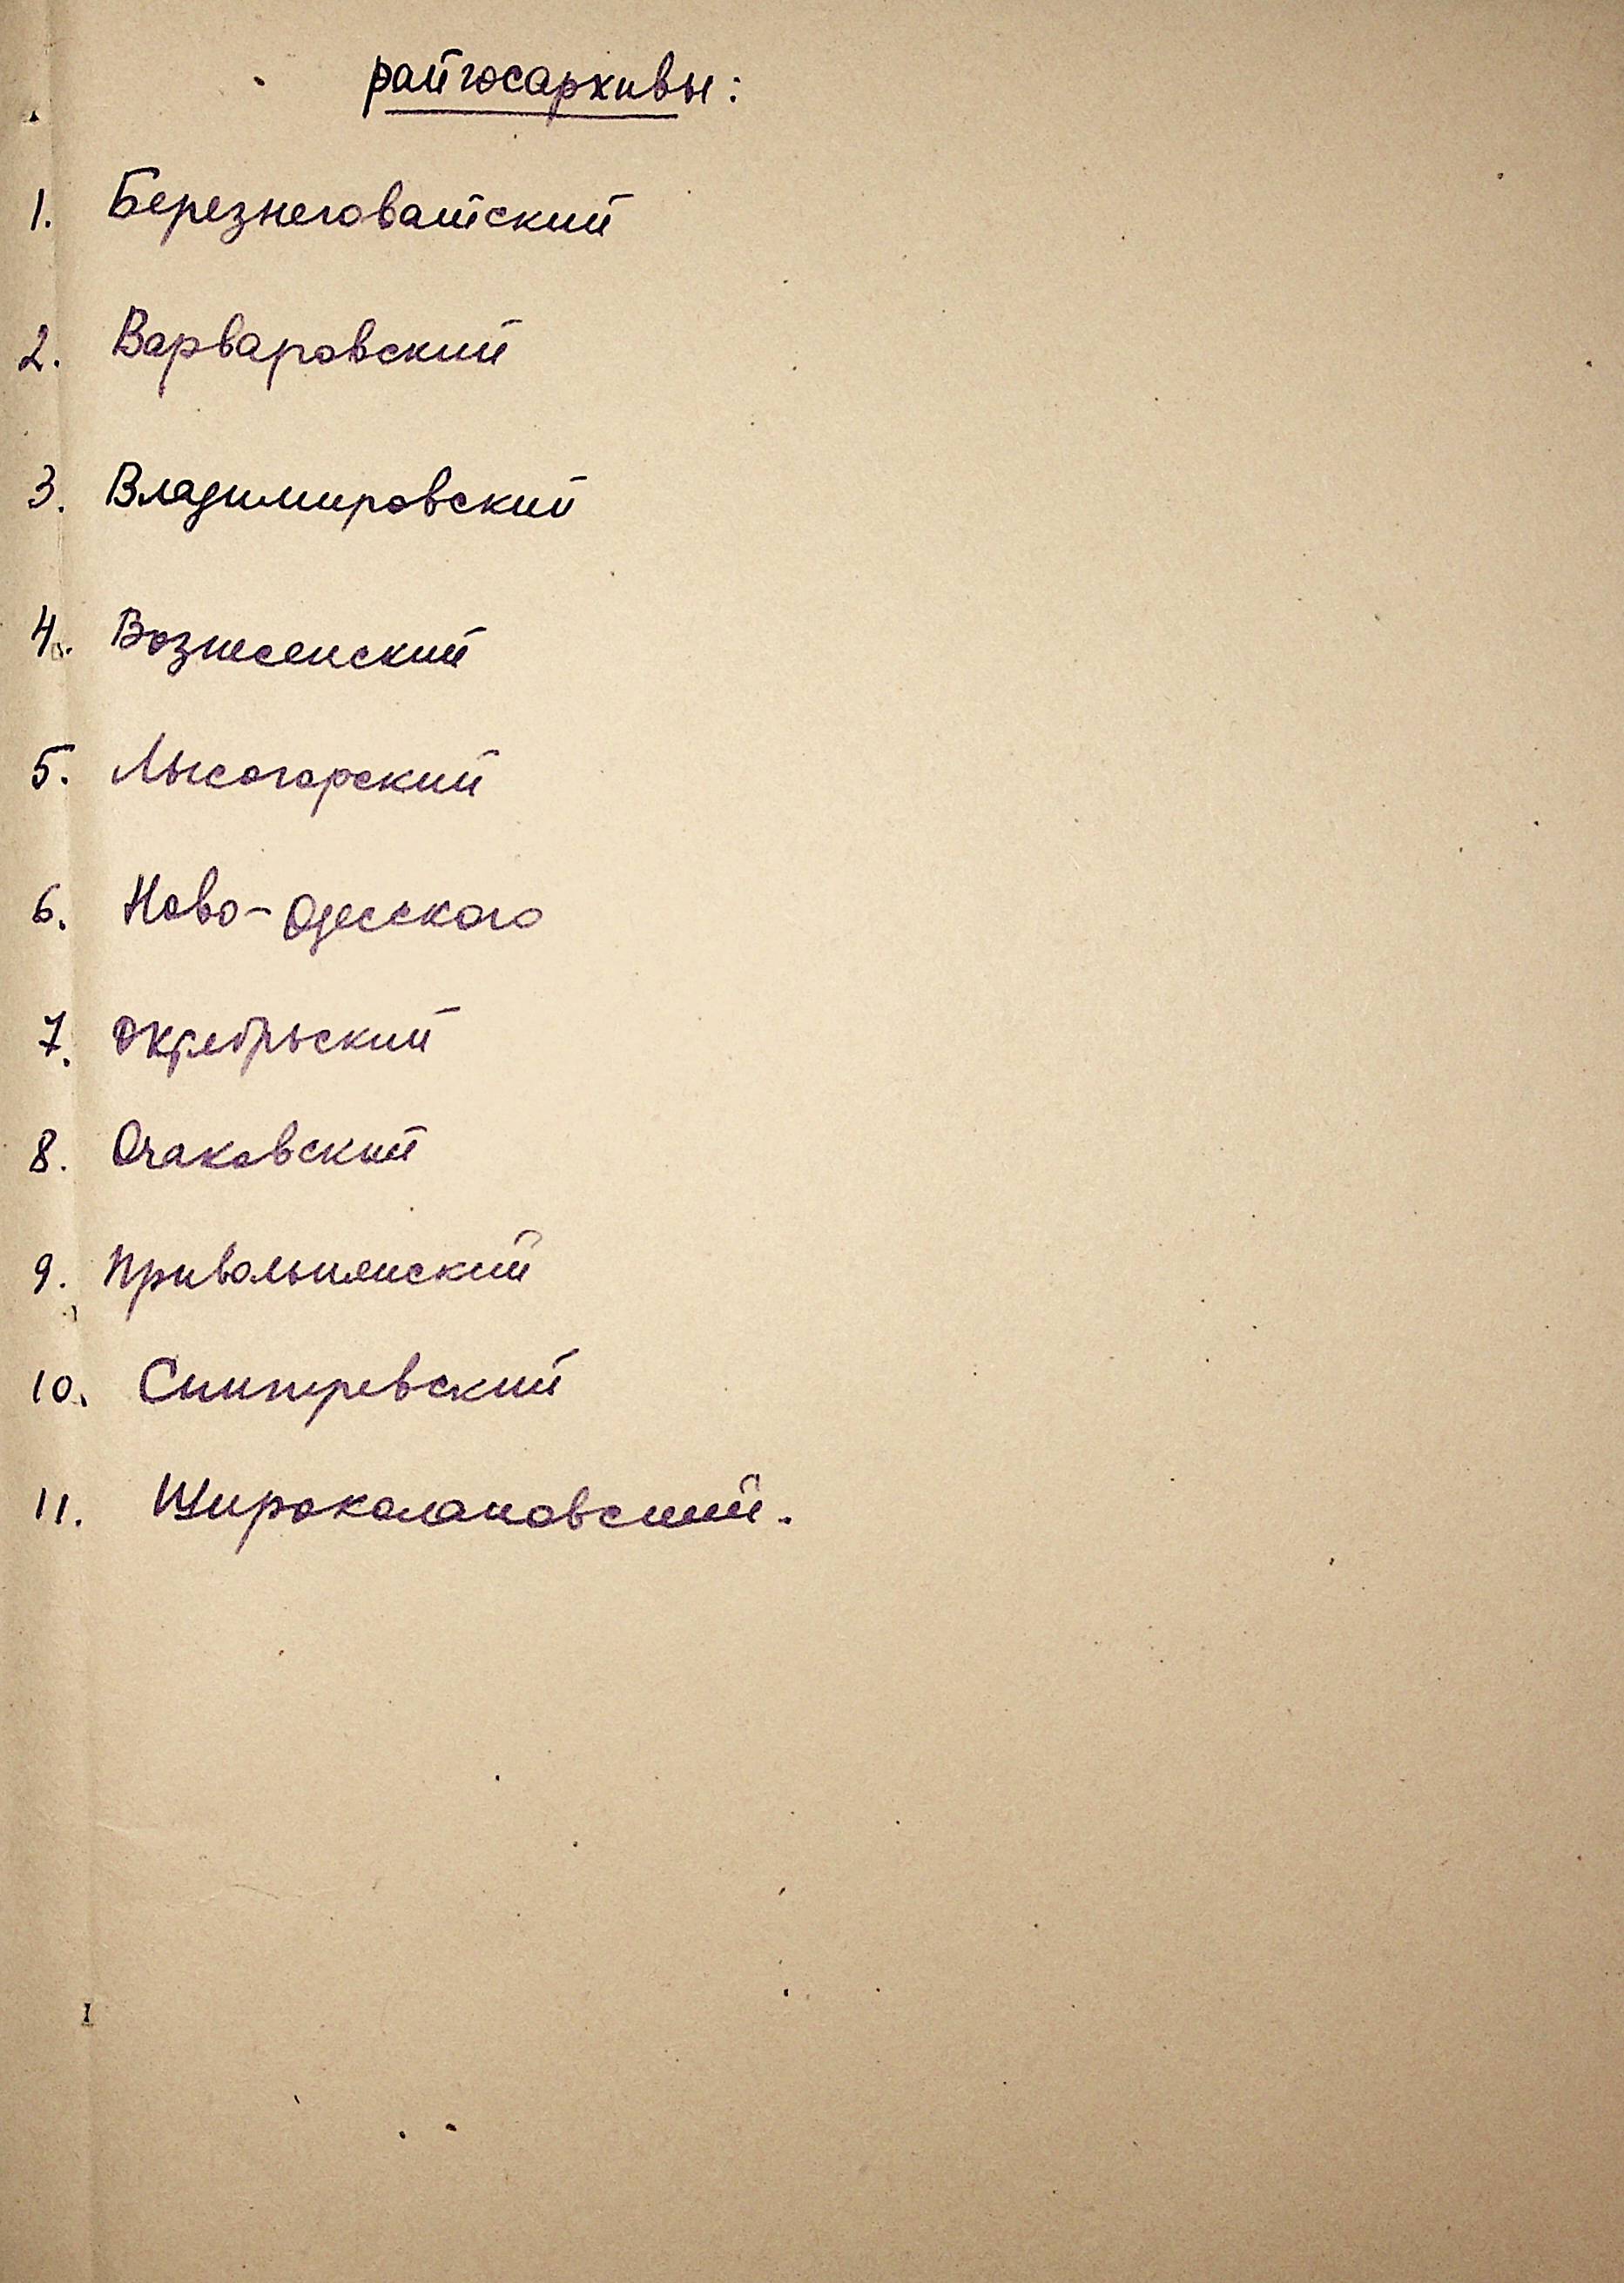 райгосархивы:
1. Березнеговатский
2. Варваровский
3. Владимировский
4. Вознесенский
5. Лысогорский
6. Ново-Одесского
7. Октябрьский
8. Очаковский
9. Привольнянский
10. Снигиревский
11. Широколановский.